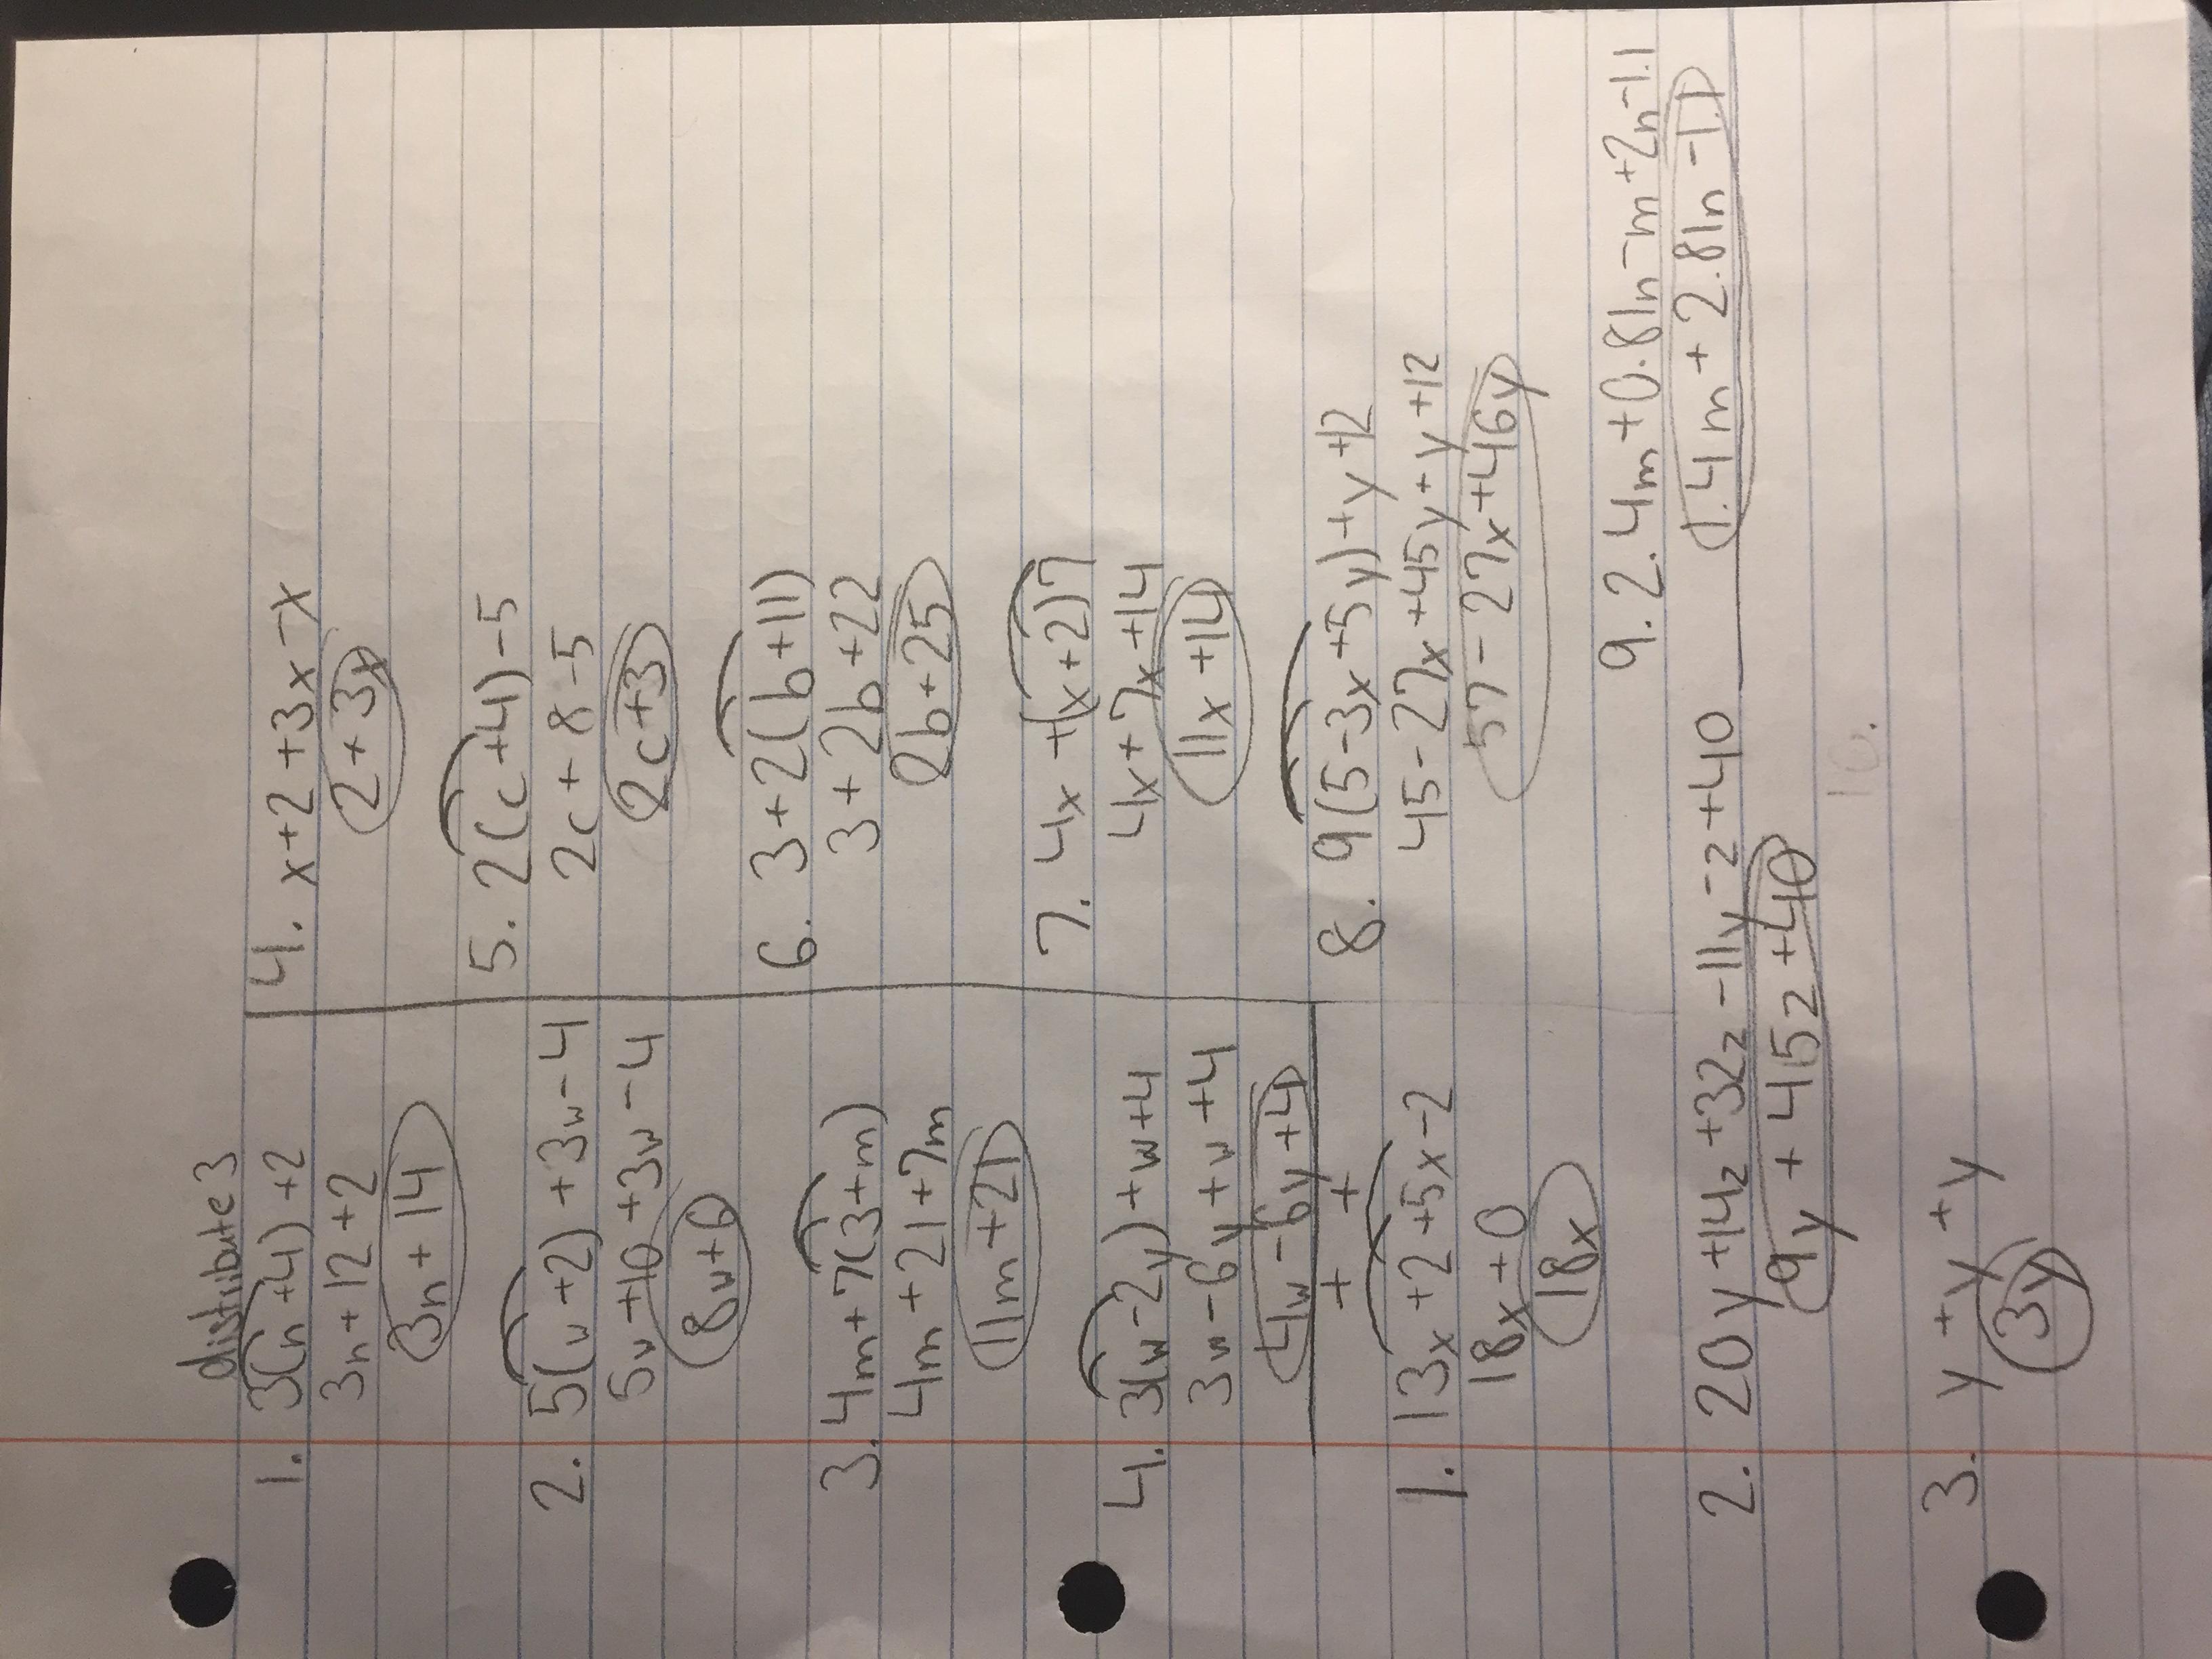 distribute 3
1. 3(n+4)+2
3n+12+2
3n+14
2. 5(v+2)+3w-4
5v+10+3w-4
8w+6
3. 4m+7(3+m)
4m+21+7m
11m+21
4. 3(w-2y)+w+4
3w-6y+w+4
4w-6y+4
+ +
1. 13x+2+5x-2
18x+0
18x
2. 20y+14z+32z-11y-z+40
9y+45z+40
3. y+y+y
3y
4. x+2+3x-x
2+3x
5. 2(c+4)-5
2c+8-5
2c+3
6. 3+2(b+11)
3+2b+22
2b+25
7. 4x+(x+2)7
4x+7x+14
11x+14
8. 9(5-3x+5y)+y+12
45-27x+45y+y+12
57-27x+46y
9. 2.4m+0.81n-m+2n-1.1
1.4m+2.81n-1.1
10.